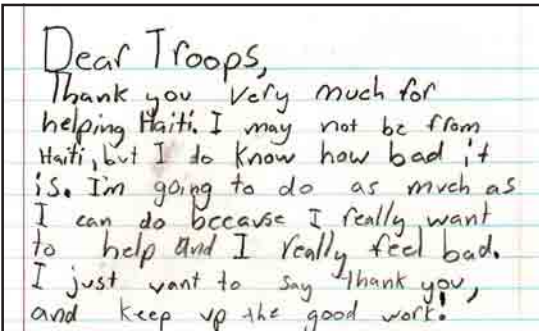 Dear Troops,
Thank you very much for
helping Haiti. I may not be from
Haiti, but I do know how bad it
is. I'm going to do as much as
I can do because I really want
to help and I really feel bad.
I just want to say thank you,
and keep up the good work!